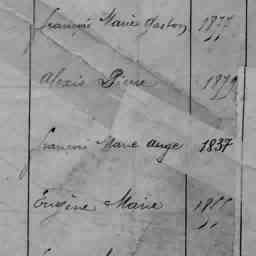 françois Marie Gaston 1877
Alexis Pierre 1879
françois Marie Ange 1837
Eugène Marie